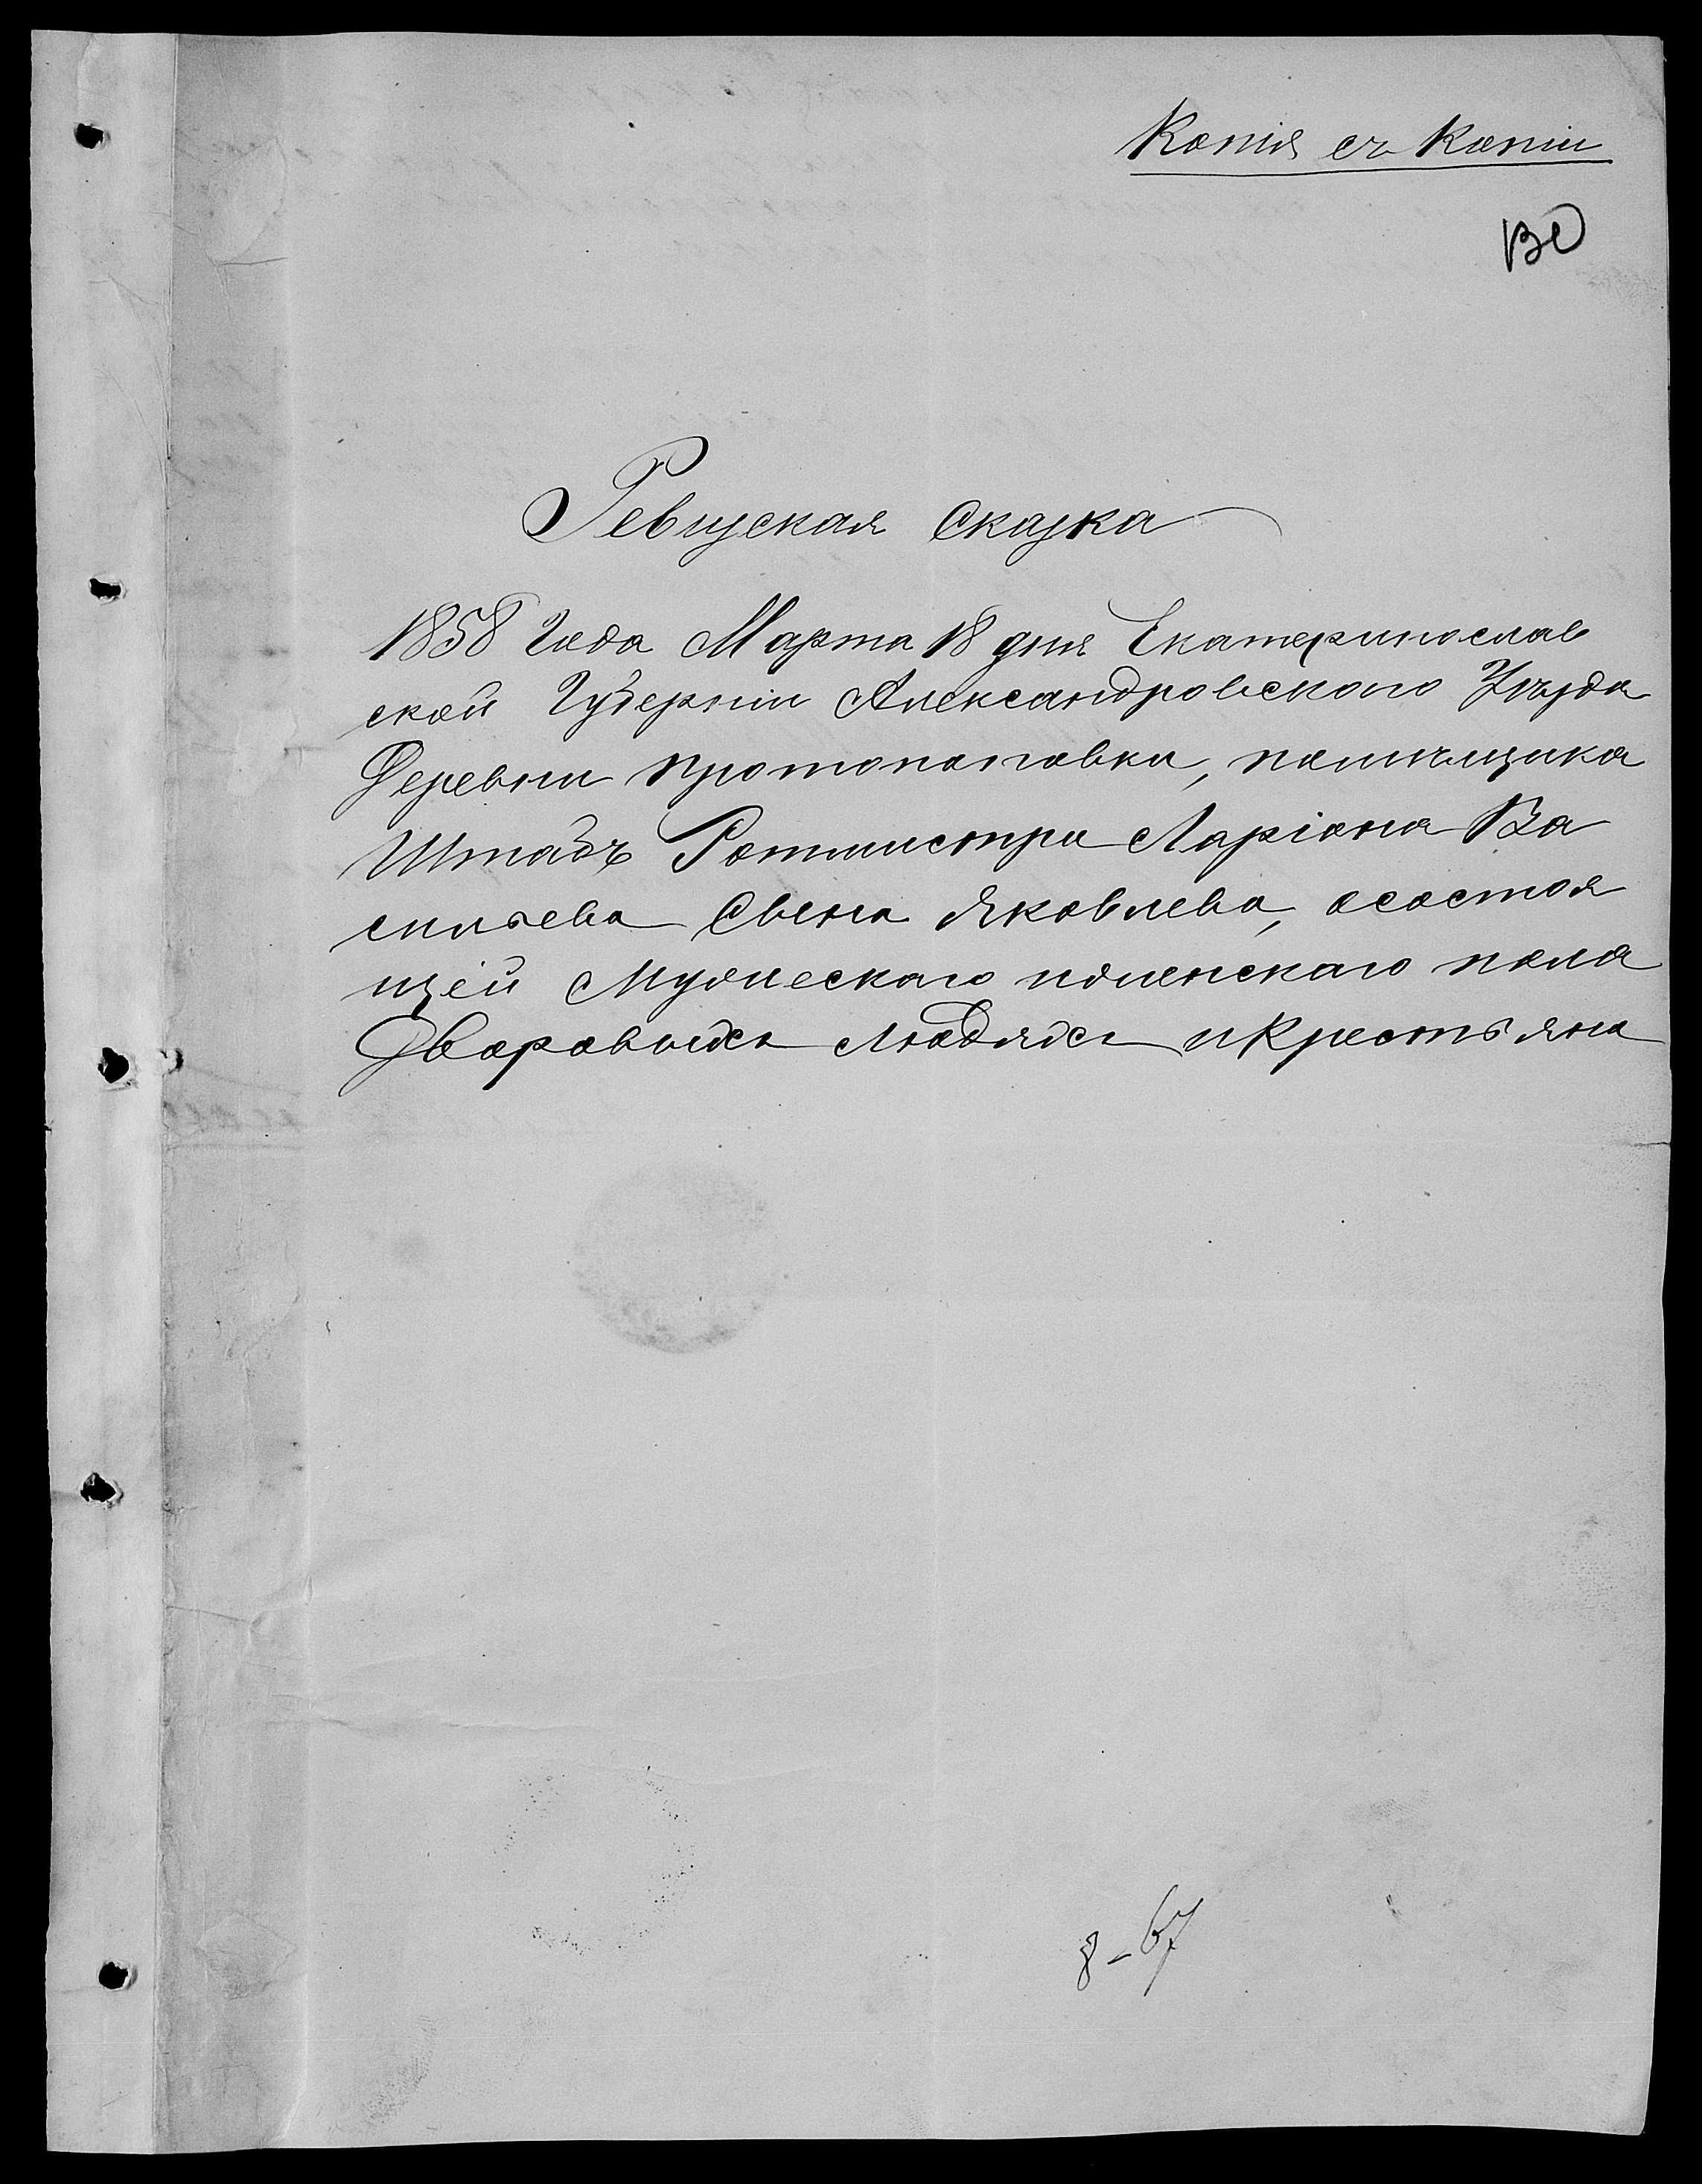 Копія съ Копіи
ВО
Ревизская Сказка
1858 Года Марта 18 дня Екатеринослав
ской Губерніи Александровского Уѣзда
Деревни Протопоповки, помѣщика
Штабъ Ротмистра Ларіона Ва
сильева Сына Яковлева, осостоя
щей Мужескаго иженскаго пола
Дворовыхъ Людяхъ иКрестьяна
8-67